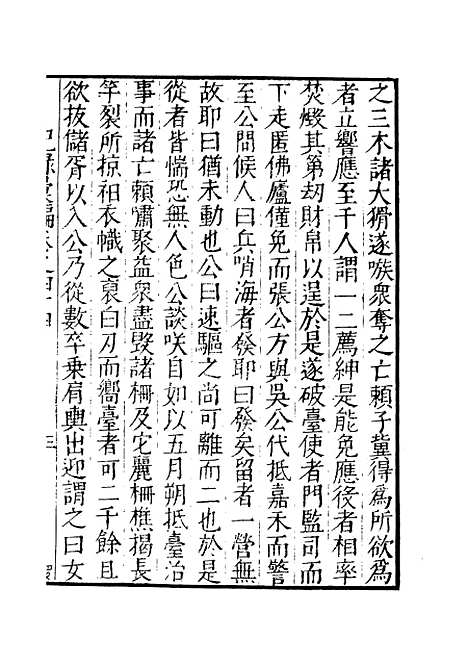 之三木諸大猾遂嗾衆奪之亡頼子冀得爲所欲爲
者立響應至千人謂一二薦紳是能免應後者相率
焚燬其第刧財帛以逞於是遂破臺使者門監司而
下走匿佛廬僅免而張公方與吳公代抵嘉禾而警
至公問候人曰兵哨海者發耶曰發矣留者一營無
故耶曰猶未動也公曰速驅之尚可離而二也於是
從者皆惴恐無人色公談咲自如以五月朔抵臺治
事而諸亡頼嘯聚益衆盡毀諸柵及宅麗柵樵揭長
竿裂所掠袒衣幟之裒白刃而嚮臺者可二千餘且
欲拔儲胥以入公乃從數卒乗肩輿出迎謂之曰女
紀錄彙編卷之四十四
三